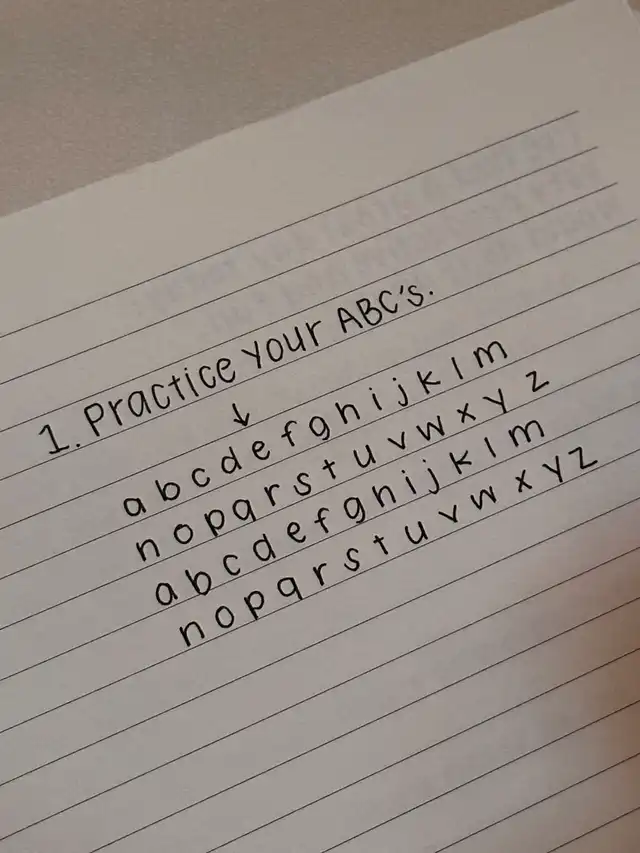 1. Practice your ABC's.
↓
a b c d e f g h i j k l m
n o p q r s t u v w x y z
a b c d e f g h i j k l m
n o p q r s t u v w x y z